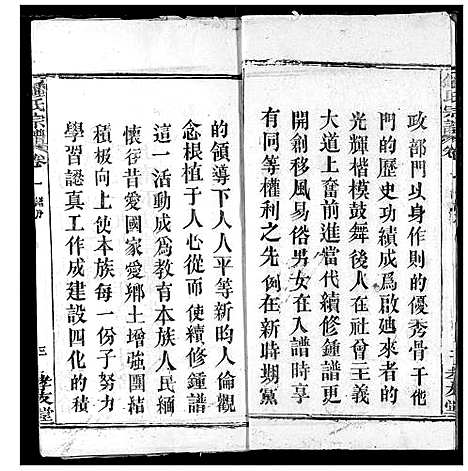 政部門以身作則的優秀骨干他
門的歷史功績成爲啟廸來者的
光輝楷模鼓舞後人在社曾王義
大道上奮前進當代續修鍾譜
開創移風易俗男女在前譜時享
有同等權利之先例在新時期黨
的領導下人人平等新昀人倫觀
念根植于人心從而使續修鍾譜
這一活動成爲教育本族人民緬
懷往昔愛國家愛鄉土增強團結
積极向上使本族每一份子努力
學習認真工作成建設四化的積
鍾氏宗譜 卷一
三 孝友堂